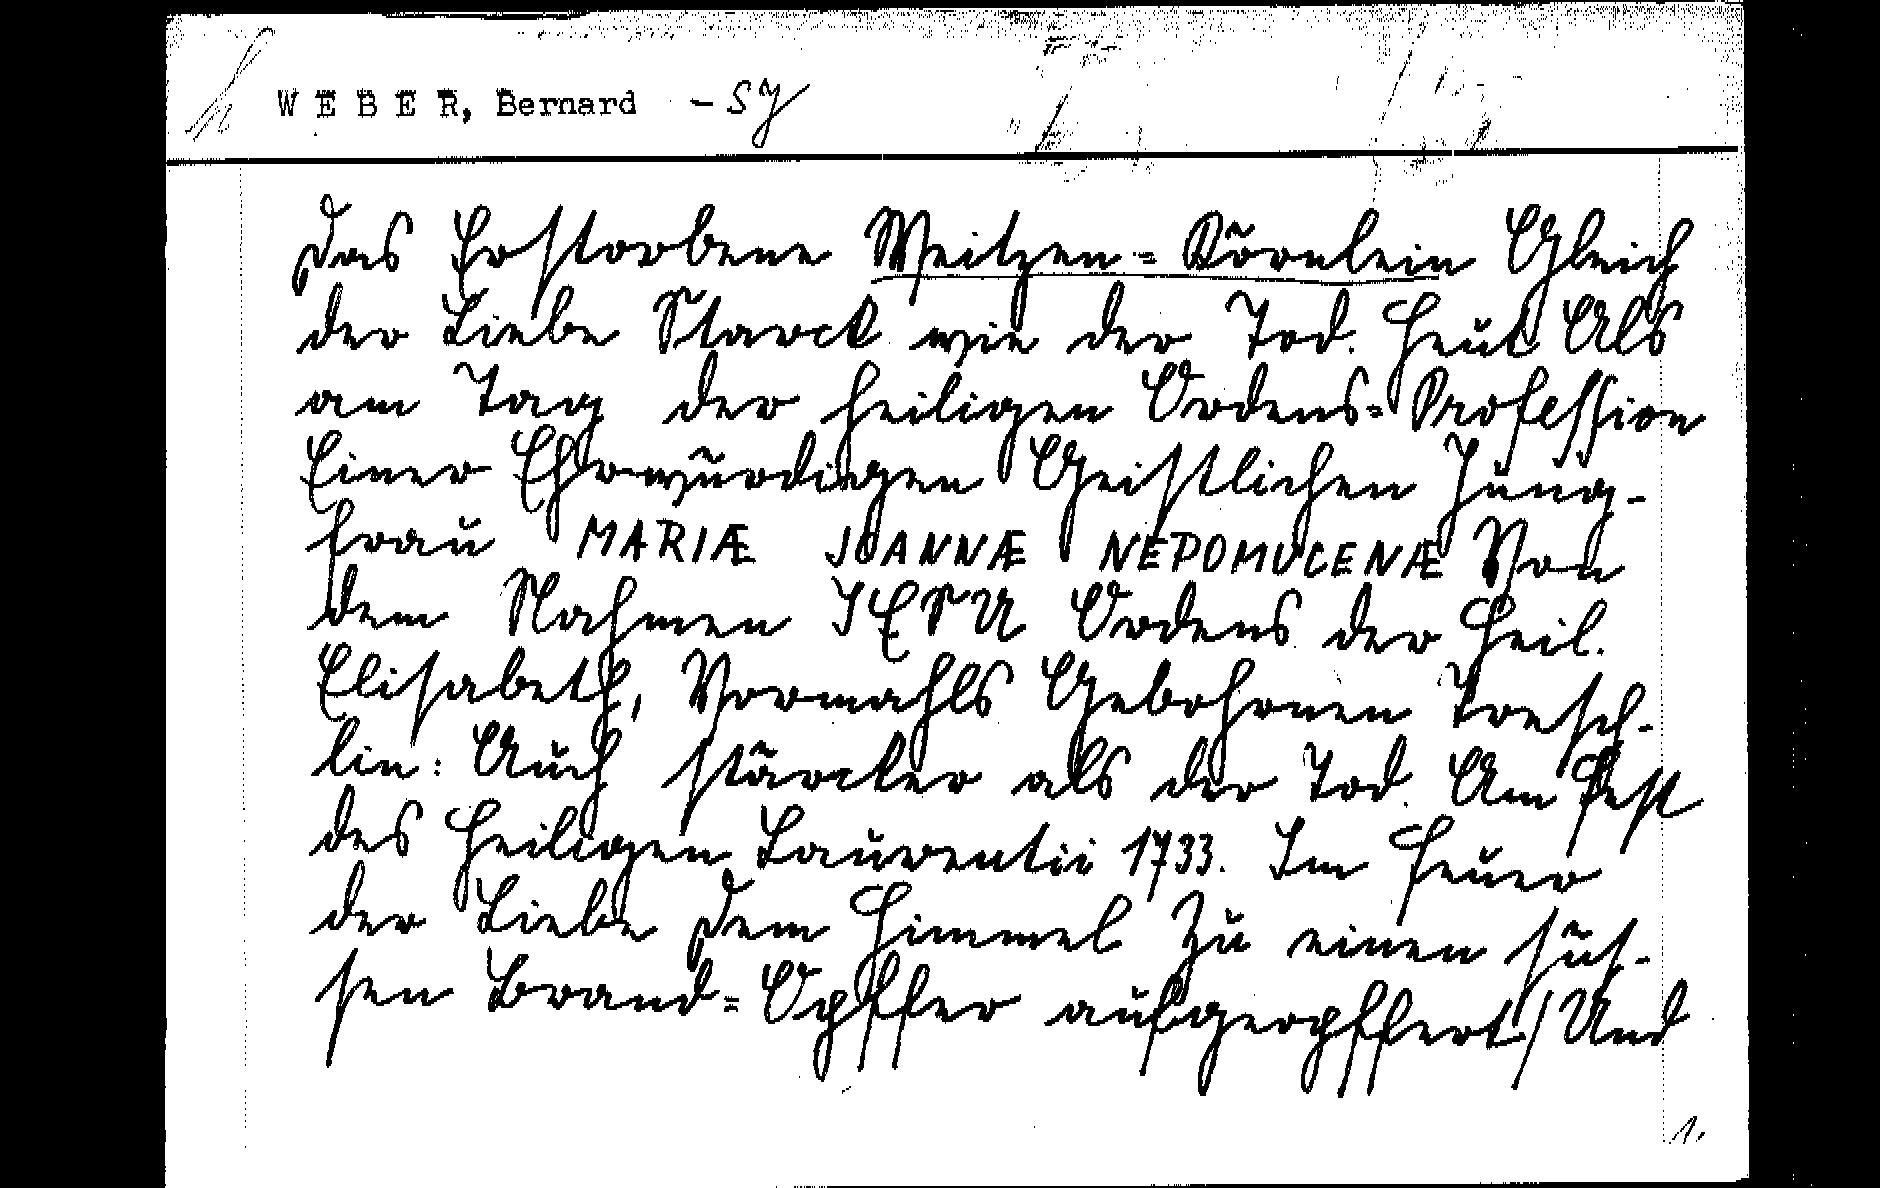 W E B E R, Bernard - SJ
Das Erstorbene Weitzen=Körnlein Gleich
der Liebe Starck wie der Tod. Heut Als
am Tag der heiligen Ordens=Profession
Einer Ehrwürdigen Geistlichen Jung-
frau MARIÆ JOANNÆ NEPOMUCENÆ Von
dem Nahmen JESU Ordens der Heil.
Elisabeth, Vormahls Gebohrnen Tresch-
lin: Auch stärcker als der Tod. Am Fest
des Heiligen Laurentii 1733. Im Feuer
der Liebe Dem Himmel Zu einen süs-
sen Brand=Opffer aufgeopffert/ Und
1.